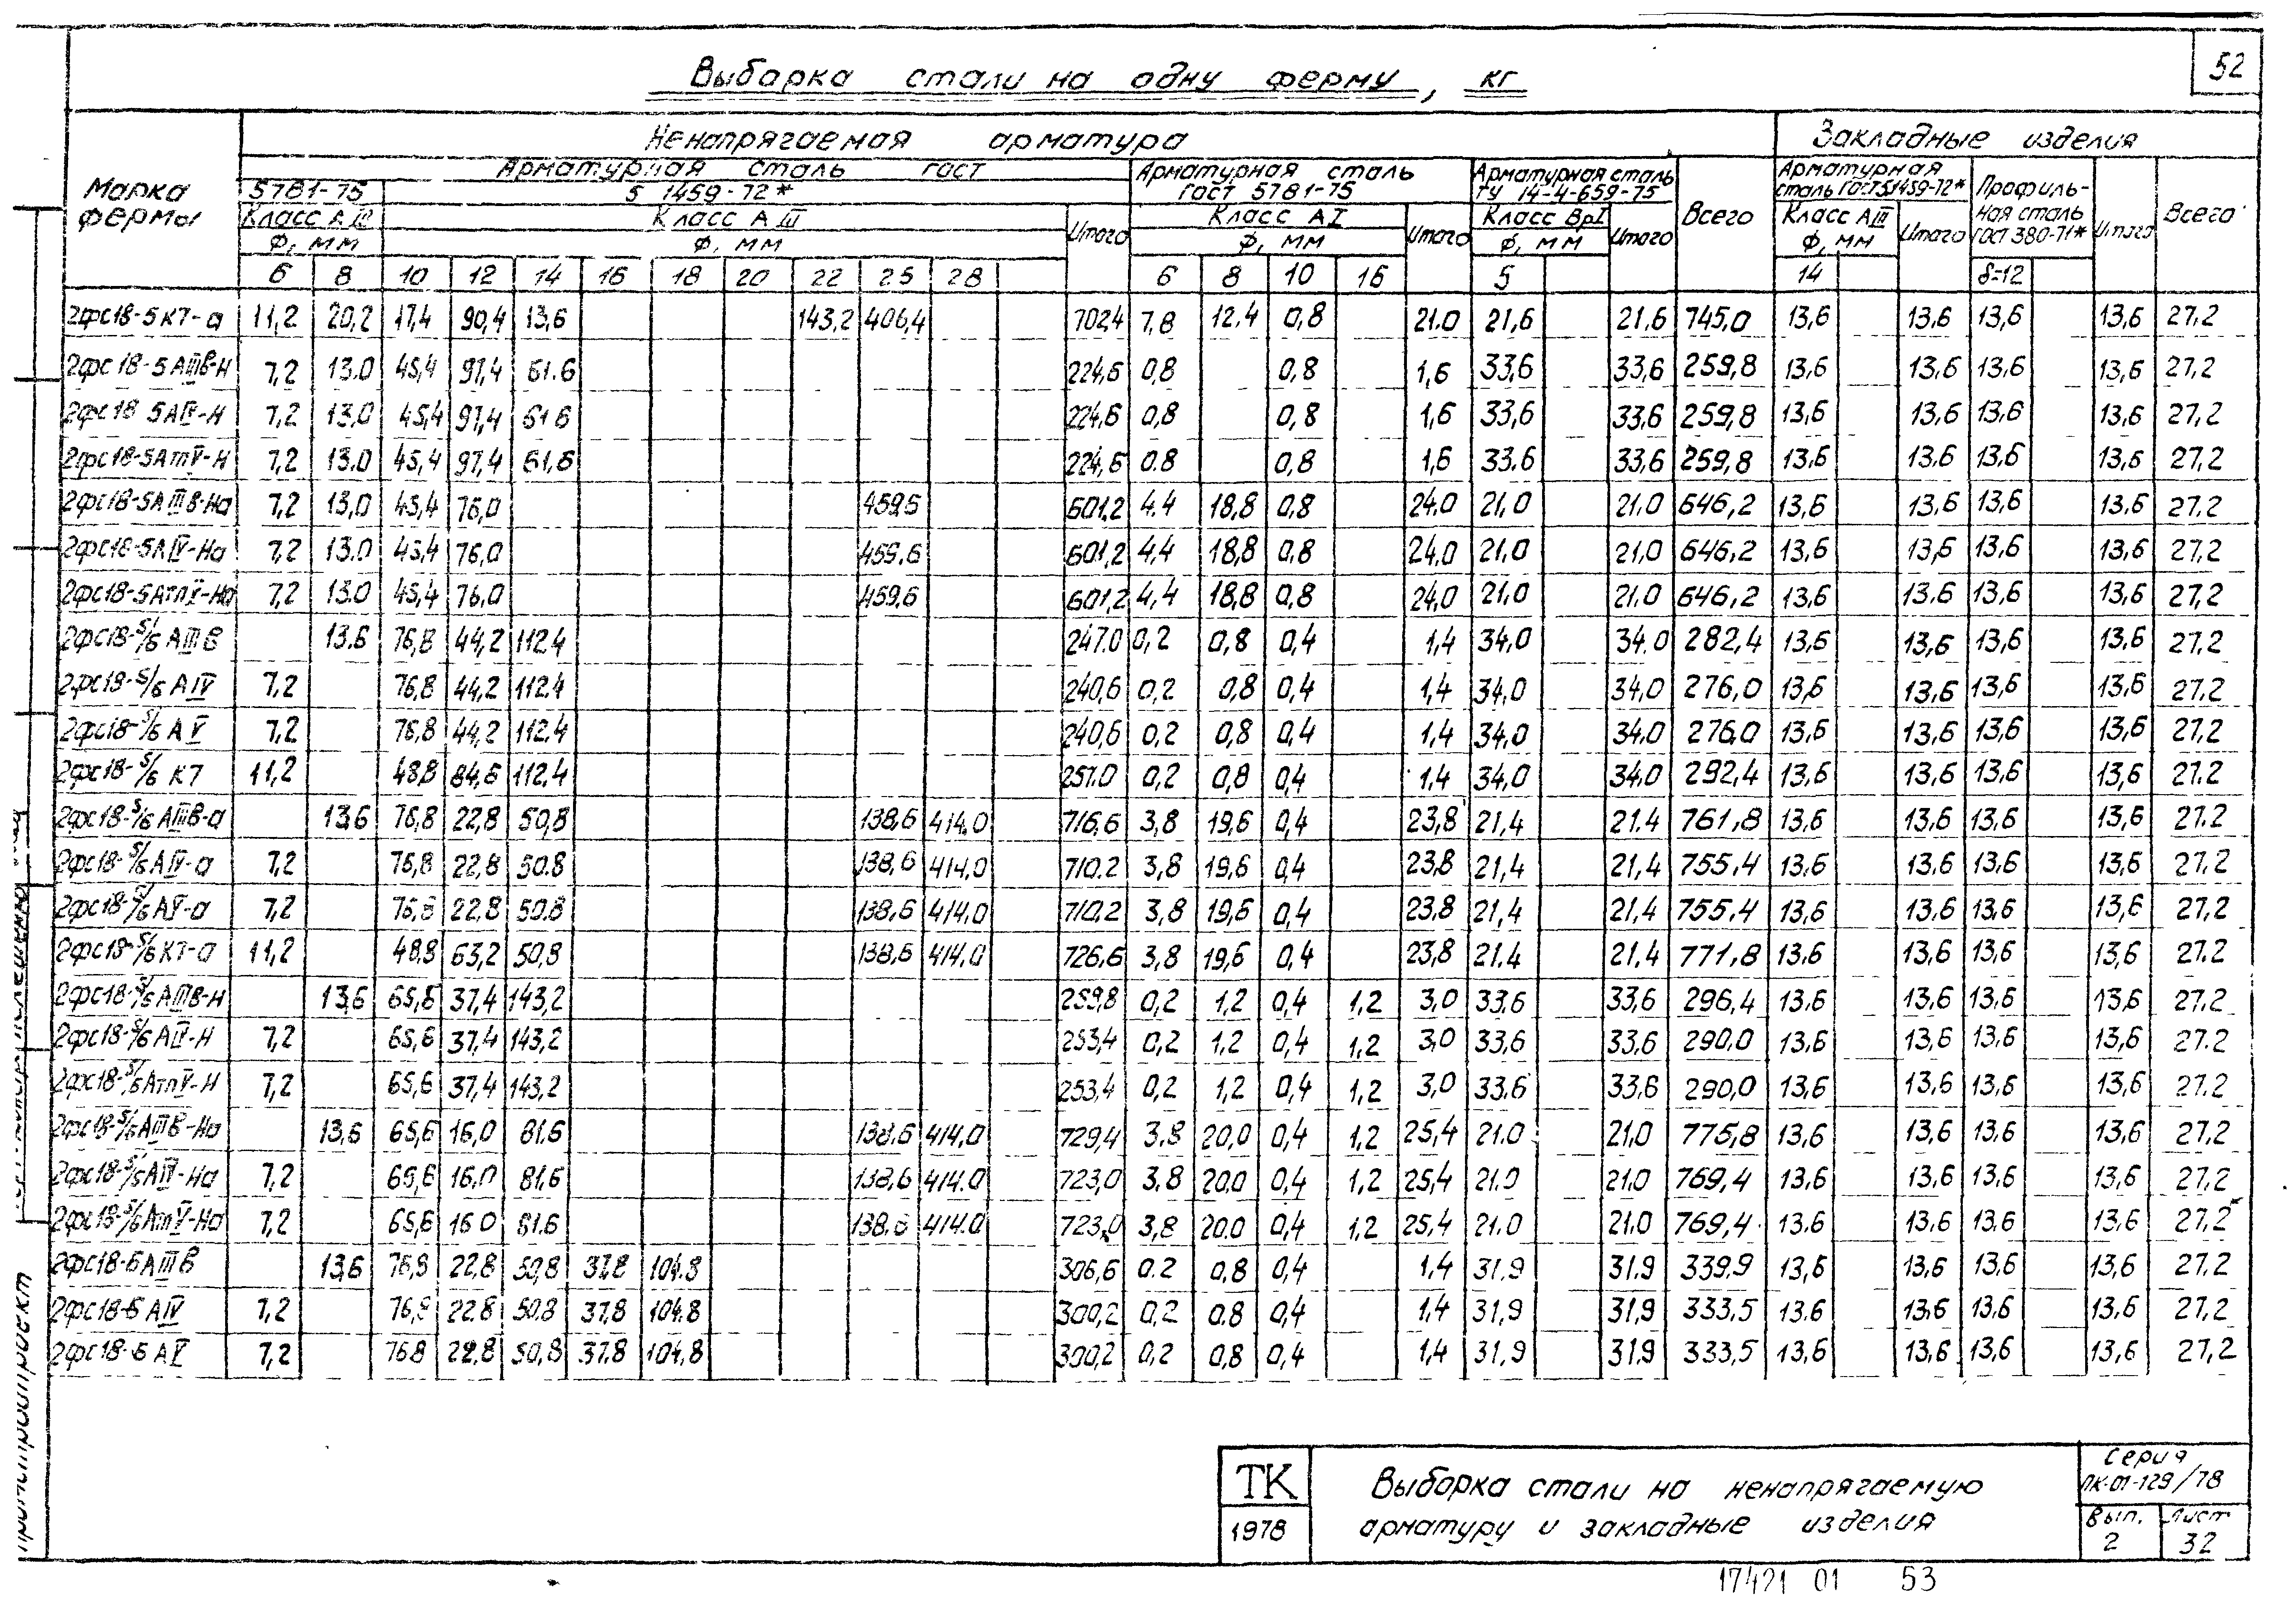 52
Выборка стали на одну ферму, кг
Марка фермы
Ненапрягаемая арматура
Закладные изделия
Арматурная сталь ГОСТ
5781-75
5 1459-72*
Класс А III
Класс А III
Ф, мм
Ф, мм
Итого
Арматурная сталь ГОСТ 5781-75
Класс АI
Ф, мм
Итого
Арматурная сталь ТУ 14-4-659-75
Класс ВрI
Ф, мм
Итого
Всего
Арматурная сталь ГОСТ51459-72*
Класс АIII
Ф, мм
Итого
Профильная сталь ГОСТ 380-71*
Итого
Всего
6 8 10 12 14 16 18 20 22 25 28 6 8 10 16 5 14 δ=12
2фс18-5К7-а 11,2 20,2 17,4 90,4 13,6 143,2 406,4 702,4 7,8 12,4 0,8 21.0 21,6 21,6 745,0 13,6 13,6 13,6 13,6 27,2
2фс18-5АIIIв-Н 7,2 13.0 45,4 97,4 61.6 224,6 0,8 0,8 1,6 33,6 33,6 259,8 13,6 13,6 13,6 13,6 27,2
2фс18 5АIV-Н 7,2 13,0 45,4 97,4 61 6 224,6 0,8 0,8 1,6 33,6 33,6 259,8 13,6 13,6 13,6 13,6 27,2
2фс18-5АтV-Н 7,2 13.0 45,4 97,4 61,6 224,6 0.8 0,8 1,6 33.6 33,6 259,8 13,6 13,6 13,6 13,6 27,2
2фс18-5АIIIв-На 7,2 13,0 45,4 76,0 459,6 601,2 4.4 18,8 0,8 24,0 21,0 21,0 646,2 13,6 13,6 13,6 13,6 27,2
2фс18-5АIV-На 7,2 13.0 45,4 76,0 459,6 601,2 4,4 18,8 0,8 24,0 21,0 21,0 646,2 13,6 13,6 13,6 13,6 27,2
2фс18-5АтV-На 7,2 13.0 45,4 76,0 459,6 601,2 4,4 18,8 0,8 24,0 21,0 21,0 646,2 13,6 13,6 13,6 13,6 27,2
2фс18-5/6 АIIIв 13.6 76,8 44,2 112,4 247.0 0,2 0,8 0,4 1,4 34,0 34.0 282,4 13,6 13,6 13,6 13,6 27,2
2фс18-5/6 АIV 7,2 76,8 44,2 112,4 240,6 0,2 0,8 0,4 1,4 34,0 34,0 276,0 13,6 13,6 13,6 13,6 27,2
2фс18-5/6 АV 7,2 76,8 44,2 112,4 240,6 0,2 0,8 0,4 1,4 34,0 34,0 276,0 13,6 13,6 13,6 13,6 27,2
2фс18-5/6 К7 11,2 48,8 84,6 112,4 257.0 0,2 0,8 0,4 1,4 34,0 34,0 292,4 13,6 13,6 13,6 13,6 27.2
2фс18-5/6 АIIIв-а 13,6 76,8 22,8 50,8 138,6 414,0 716,6 3,8 19,6 0,4 23,8 21,4 21.4 761,8 13,6 13,6 13,6 13,6 27.2
2фс18-5/6АIV-а 7,2 76,8 22,8 50.8 138,6 414,0 710.2 3,8 19,6 0,4 23,8 21,4 21,4 755,4 13,6 13,6 13,6 13,6 27,2
2фс18-5/6АV-а 7,2 76,8 22,8 50.8 138,6 414,0 710,2 3,8 19,6 0,4 23,8 21,4 21,4 755,4 13,6 13,6 13,6 13,6 27,2
2фс18-5/6К7-а 11,2 48,8 63,2 50,8 138,6 414.0 726,6 3,8 19,6 0,4 23,8 21.4 21,4 771,8 13,6 13,6 13,6 13,6 27.2
2фс18-5/6АIIIв-Н 13,6 65,6 37,4 143,2 259,8 0,2 1,2 0,4 1,2 3,0 33,6 33,6 296,4 13,6 13,6 13,6 13,6 27,2
2фс18-5/6 АIV-Н 7,2 65,6 37,4 143,2 253,4 0,2 1,2 0,4 1,2 3,0 33,6 33,6 290,0 13,6 13,6 13,6 13,6 27.2
2фс18-5/6АтV-Н 7,2 65,6 37,4 143,2 253,4 0,2 1,2 0,4 1,2 3,0 33,6 33,6 290,0 13,6 13,6 13,6 13,6 27,2
2фс18-5/6АIIIв-На 13,6 65,6 16,0 81,6 138,6 414,0 729,4 3,8 20,0 0,4 1,2 25,4 21.0 21,0 775,8 13,6 13,6 13,6 13,6 27,2
2фс18-5/6АIV-На 7,2 65,6 16,0 81,6 138,6 414.0 723,0 3,8 20,0 0,4 1,2 25,4 21.0 21,0 769,4 13,6 13,6 13,6 13,6 27,2
2фс18-5/6АтV-На 7,2 65,6 16 0 81.6 138,6 414.0 723,0 3,8 20.0 0,4 1,2 25,4 21,0 21,0 769,4 13,6 13,6 13,6 13,6 27,2
2фс18-6АIIIв 13,6 76,8 22,8 50,8 37,8 104,8 306,6 0.2 0,8 0,4 1,4 31,9 31,9 339,9 13,6 13,6 13,6 13,6 27.2
2фс18-6 АIV 7,2 76,8 22.8 50.8 37,8 104,8 300,2 0,2 0.8 0,4 1,4 31,9 31,9 333,5 13,6 13,6 13,6 13,6 27,2
2фс18-6 АV 7,2 76,8 22,8 50,8 37,8 104,8 300,2 0,2 0,8 0,4 1,4 31,9 31,9 333,5 13,6 13,6 13,6 13,6 27,2
ТК
1978
Выборка стали на ненапрягаемую
арматуру и закладные изделия
Серия
ПК-01-129/78
Вып. 2
Лист 32
17421 01 53